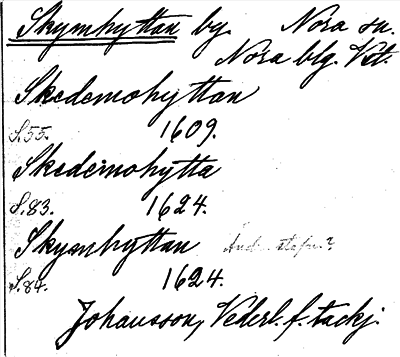 Skymhyttan by. Nora sn.
Nora blg. Vst.
Skedemohyttan
S.55. 1609.
Skedemohytta
S.83. 1624.
Skymhyttan
S.84. 1624.
Johansson, Vederl. f. tackj.